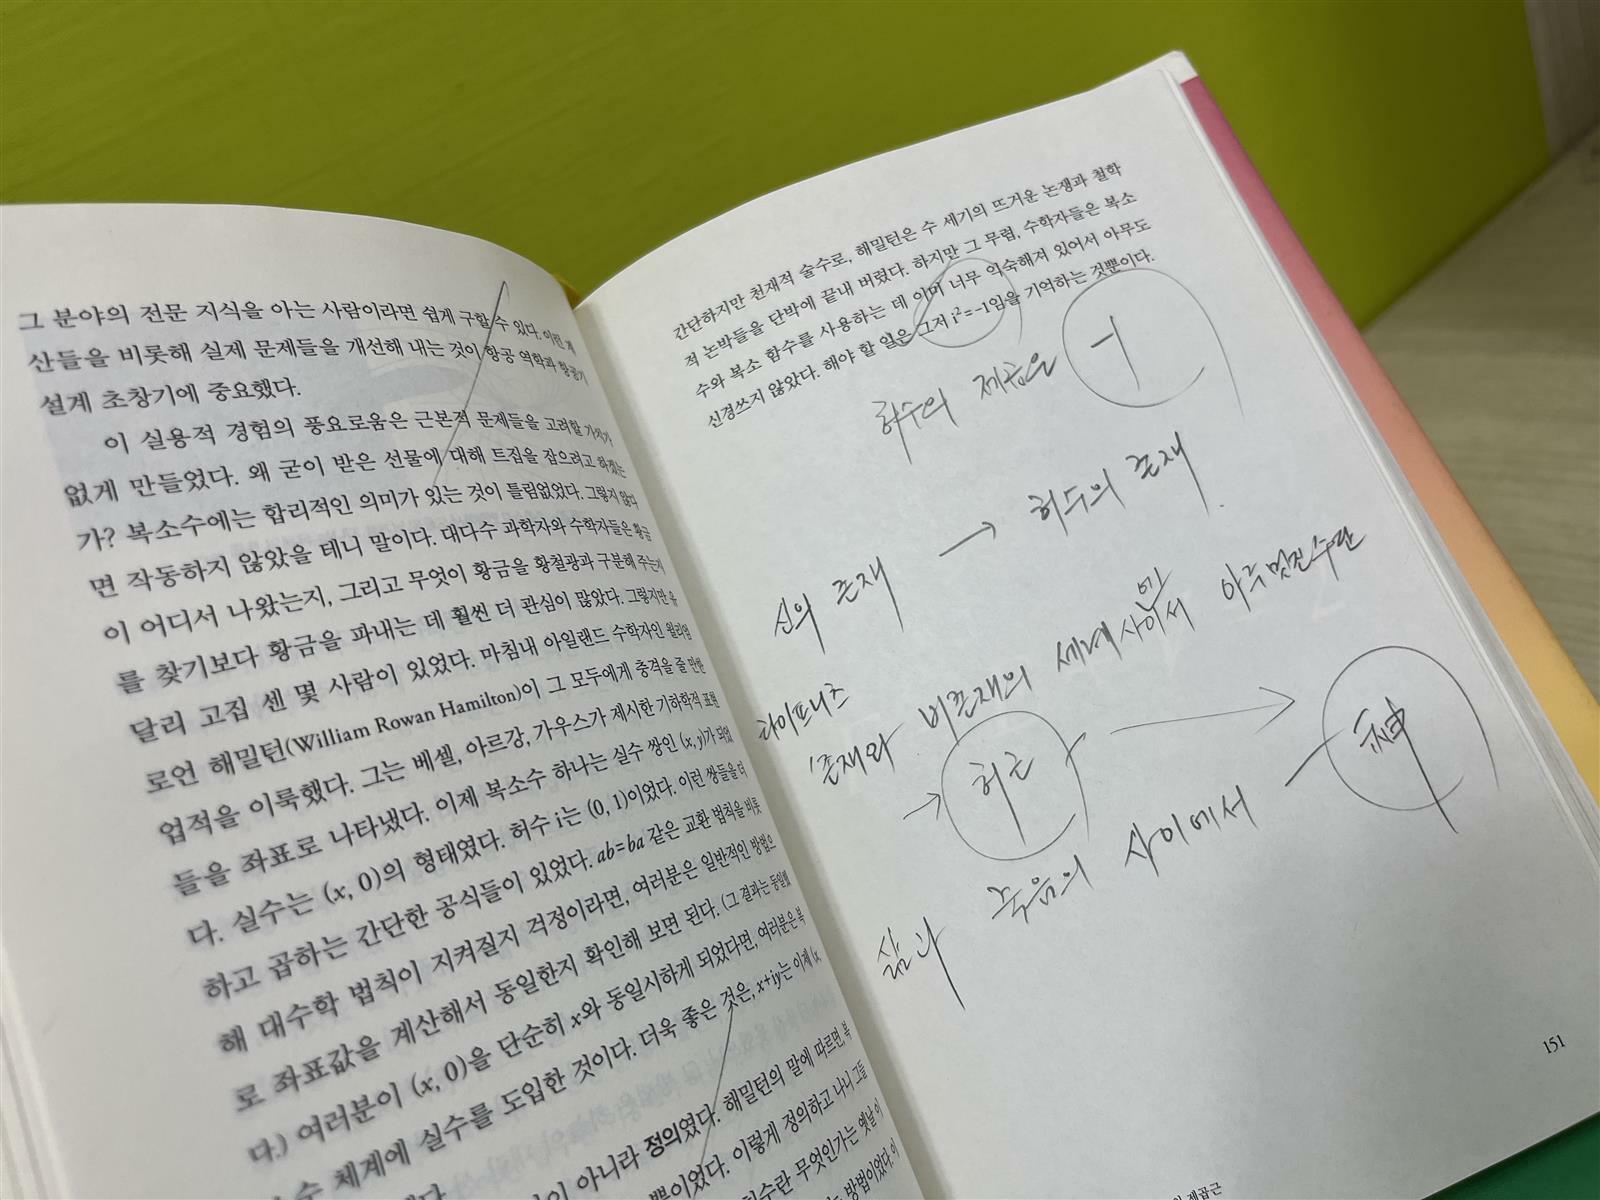 그 분야의 전문 지식을 아는 사람이라면 쉽게 구할 수 있다. 이런 계
산들을 비롯해 실제 문제들을 개선해 내는 것이 항공 역학과 항공기
설계 초창기에 중요했다.
이 실용적 경험의 풍요로움은 근본적 문제들을 고려할 가치가
없게 만들었다. 왜 굳이 받은 선물에 대해 트집을 잡으려고 하겠는
가? 복소수에는 합리적인 의미가 있는 것이 틀림없었다. 그렇지 않다
면 작동하지 않았을 테니 말이다. 대다수 과학자와 수학자들은 황금
이 어디서 나왔는지, 그리고 무엇이 황금을 황철광과 구분해 주는지
를 찾기보다 황금을 파내는 데 훨씬 더 관심이 많았다. 그렇지만 유
달리 고집 센 몇 사람이 있었다. 마침내 아일랜드 수학자인 윌리엄
로언 해밀턴(William Rowan Hamilton)이 그 모두에게 충격을 줄 만한
업적을 이룩했다. 그는 베셀, 아르강, 가우스가 제시한 기하학적 표현
들을 좌표로 나타냈다. 이제 복소수 하나는 실수 쌍인 (x, y)가 되었
다. 실수는 (x, 0)의 형태였다. 허수 i는 (0, 1)이었다. 이런 쌍들을 더
하고 곱하는 간단한 공식들이 있었다. ab=ba 같은 교환 법칙을 비롯
해 대수학 법칙이 지켜질지 걱정이라면, 여러분은 일반적인 방법으
로 좌표값을 계산해서 동일한지 확인해 보면 된다. (그 결과는 동일했
다.) 여러분이 (x, 0)을 단순히 x와 동일시하게 되었다면, 여러분은 복
체계에 실수를 도입한 것이다. 더욱 좋은 것은, x+iy는 이제 (x
아니라 정의였다. 해밀턴의 말에 따르면, 복
뿐이었다. 이렇게 정의하고 나니 그들
허수란 무엇인가는 옛날이
방법이었다. 이
간단하지만 천재적 술수로, 해밀턴은 수 세기의 뜨거운 논쟁과 철학
적 논박들을 단박에 끝내 버렸다. 하지만 그 무렵, 수학자들은 복소
수와 복소 함수를 사용하는 데 이미 너무 익숙해져 있어서 아무도
신경쓰지 않았다. 해야 할 일은 그저 i²=-1임을 기억하는 것뿐이다.
허수의 제곱은 -1
신의 존재 → 허수의 존재
라이프니츠
존재와 비존재의 세계 사이에서 아주 멋진 수단
→ 허근 → 神
삶과 죽음의 사이에서
151
제곱근